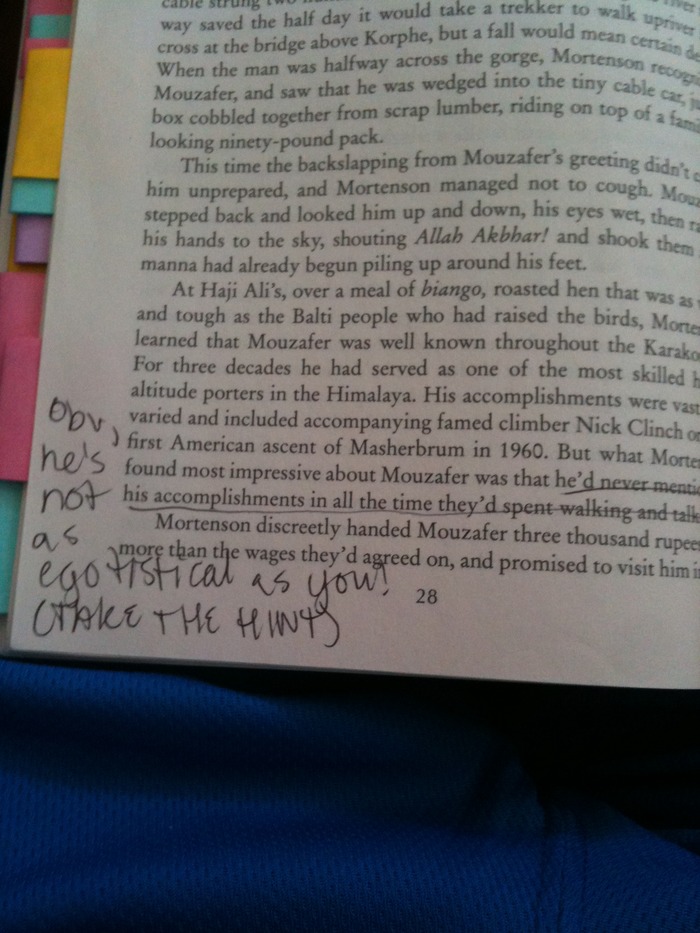 cable strung two
way saved the half day it would take a trekker to walk upriver
cross at the bridge above Korphe, but a fall would mean certain de
When the man was halfway across the gorge, Mortenson recogn
Mouzafer, and saw that he was wedged into the tiny cable car,
box cobbled together from scrap lumber, riding on top of a fami
looking ninety-pound pack.
This time the backslapping from Mouzafer's greeting didn't c
him unprepared, and Mortenson managed not to cough. Mouz
stepped back and looked him up and down, his eyes wet, then ra
his hands to the sky, shouting Allah Akbhar! and shook them
manna had already begun piling up around his feet.
At Haji Ali's, over a meal of biango, roasted hen that was as
and tough as the Balti people who had raised the birds, Morte
learned that Mouzafer was well known throughout the Karako
For three decades he had served as one of the most skilled h
altitude porters in the Himalaya. His accomplishments were vast
varied and included accompanying famed climber Nick Clinch o
first American ascent of Masherbrum in 1960. But what Morte
found most impressive about Mouzafer was that he'd never menti
his accomplishments in all the time they'd spent walking and talk
Mortenson discreetly handed Mouzafer three thousand rupee
more than the wages they'd agreed on, and promised to visit him i
28
Obv,
he's
not
as
egotistical as you!
(TAKE THE HINT)